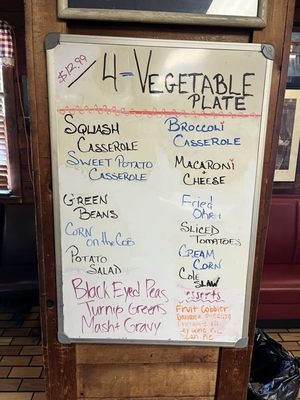 $12.99
4-VEGETABLE
PLATE
SQUASH
CASSEROLE
SWEET POTATO
CASSEROLE
GREEN
BEANS
CORN
ON THE COB
POTATO
SALAD
BROCCOLI
CASSEROLE
MACARONI +
CHEESE
FRIED
OKRA
SLICED
TOMATOES
CREAM
CORN
COLE
SLAW
Black Eyed Peas
Turnip Greens
Mash + Gravy
Desserts
Fruit Cobbler
Banana Pudding